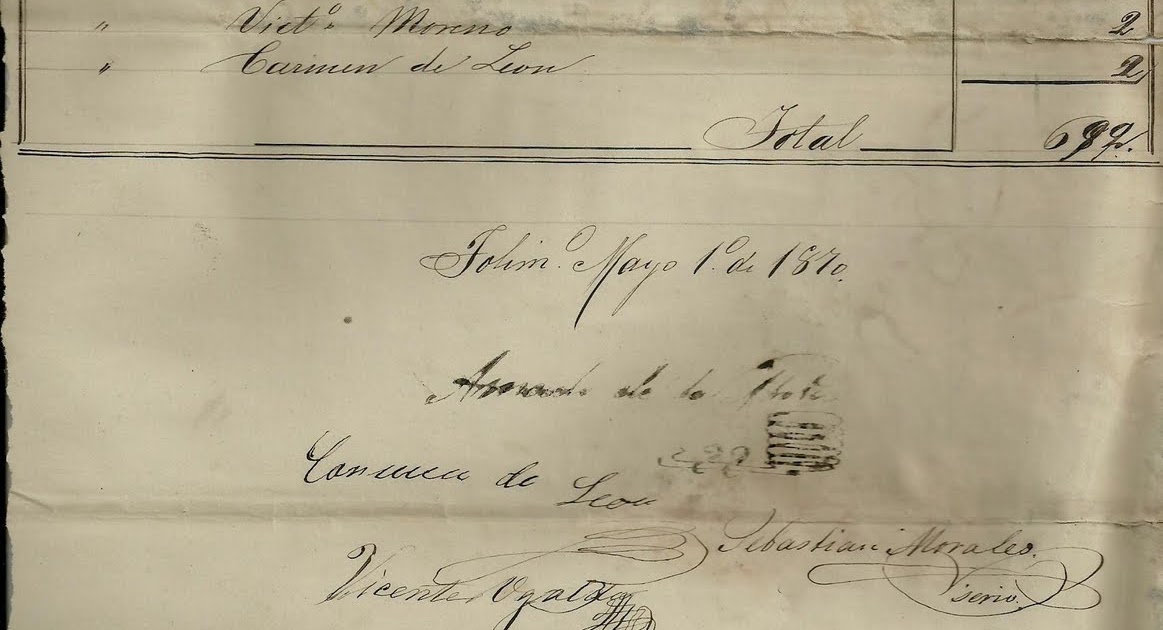 " Vict.º Moreno 2
" Carmen de Leon 2
Total 699.
Tolim.º Mayo 1º de 1870.
de la
de Leon
Sebastian Morales.
Vicente Ugalde
serio.